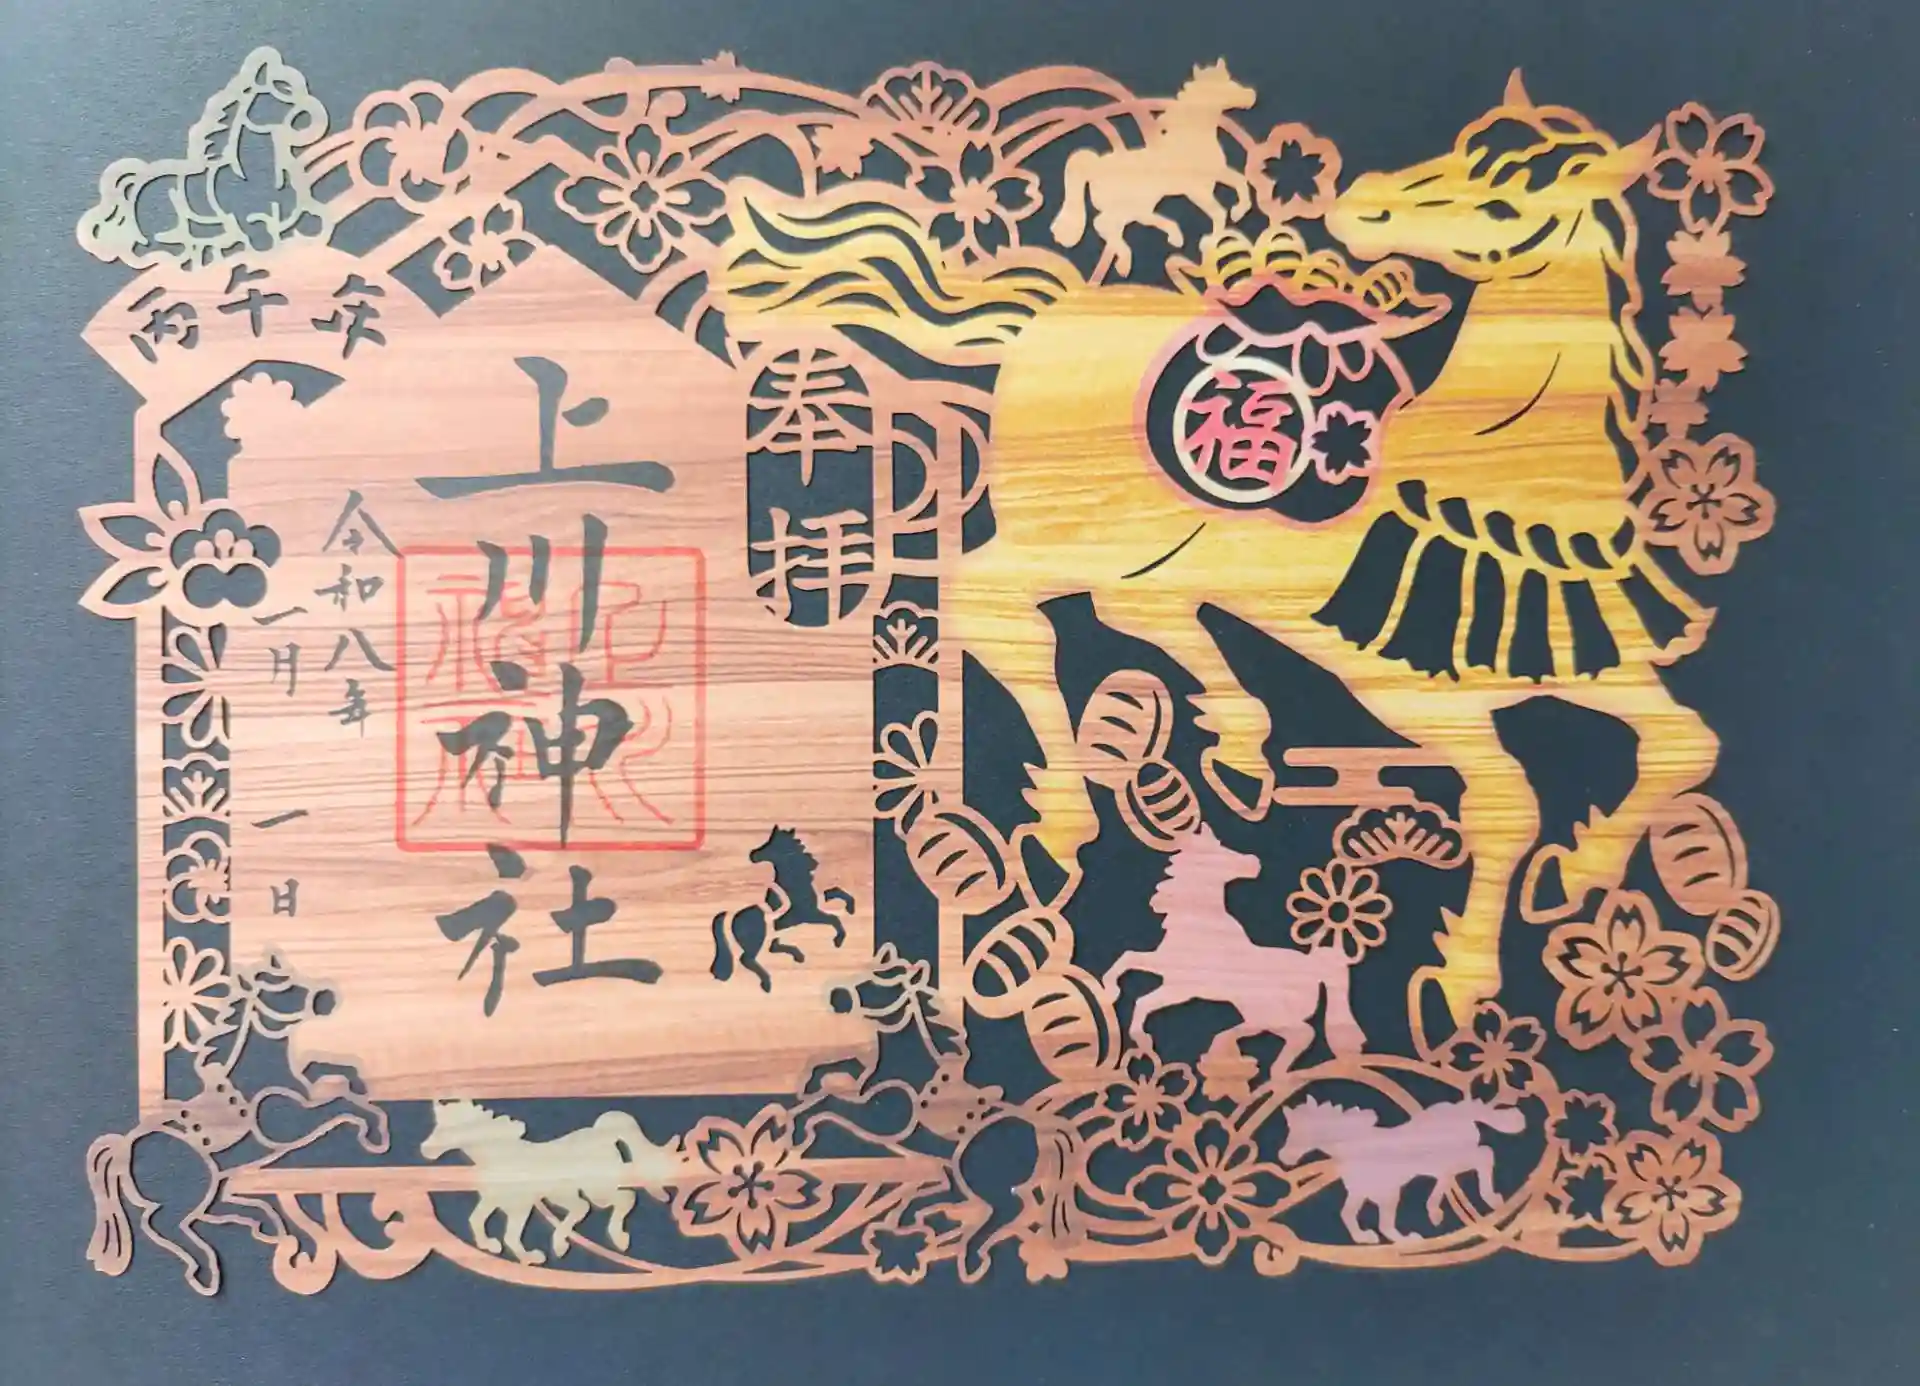 奉拝
上川神社
令和八年
一月一日
丙午歳
福